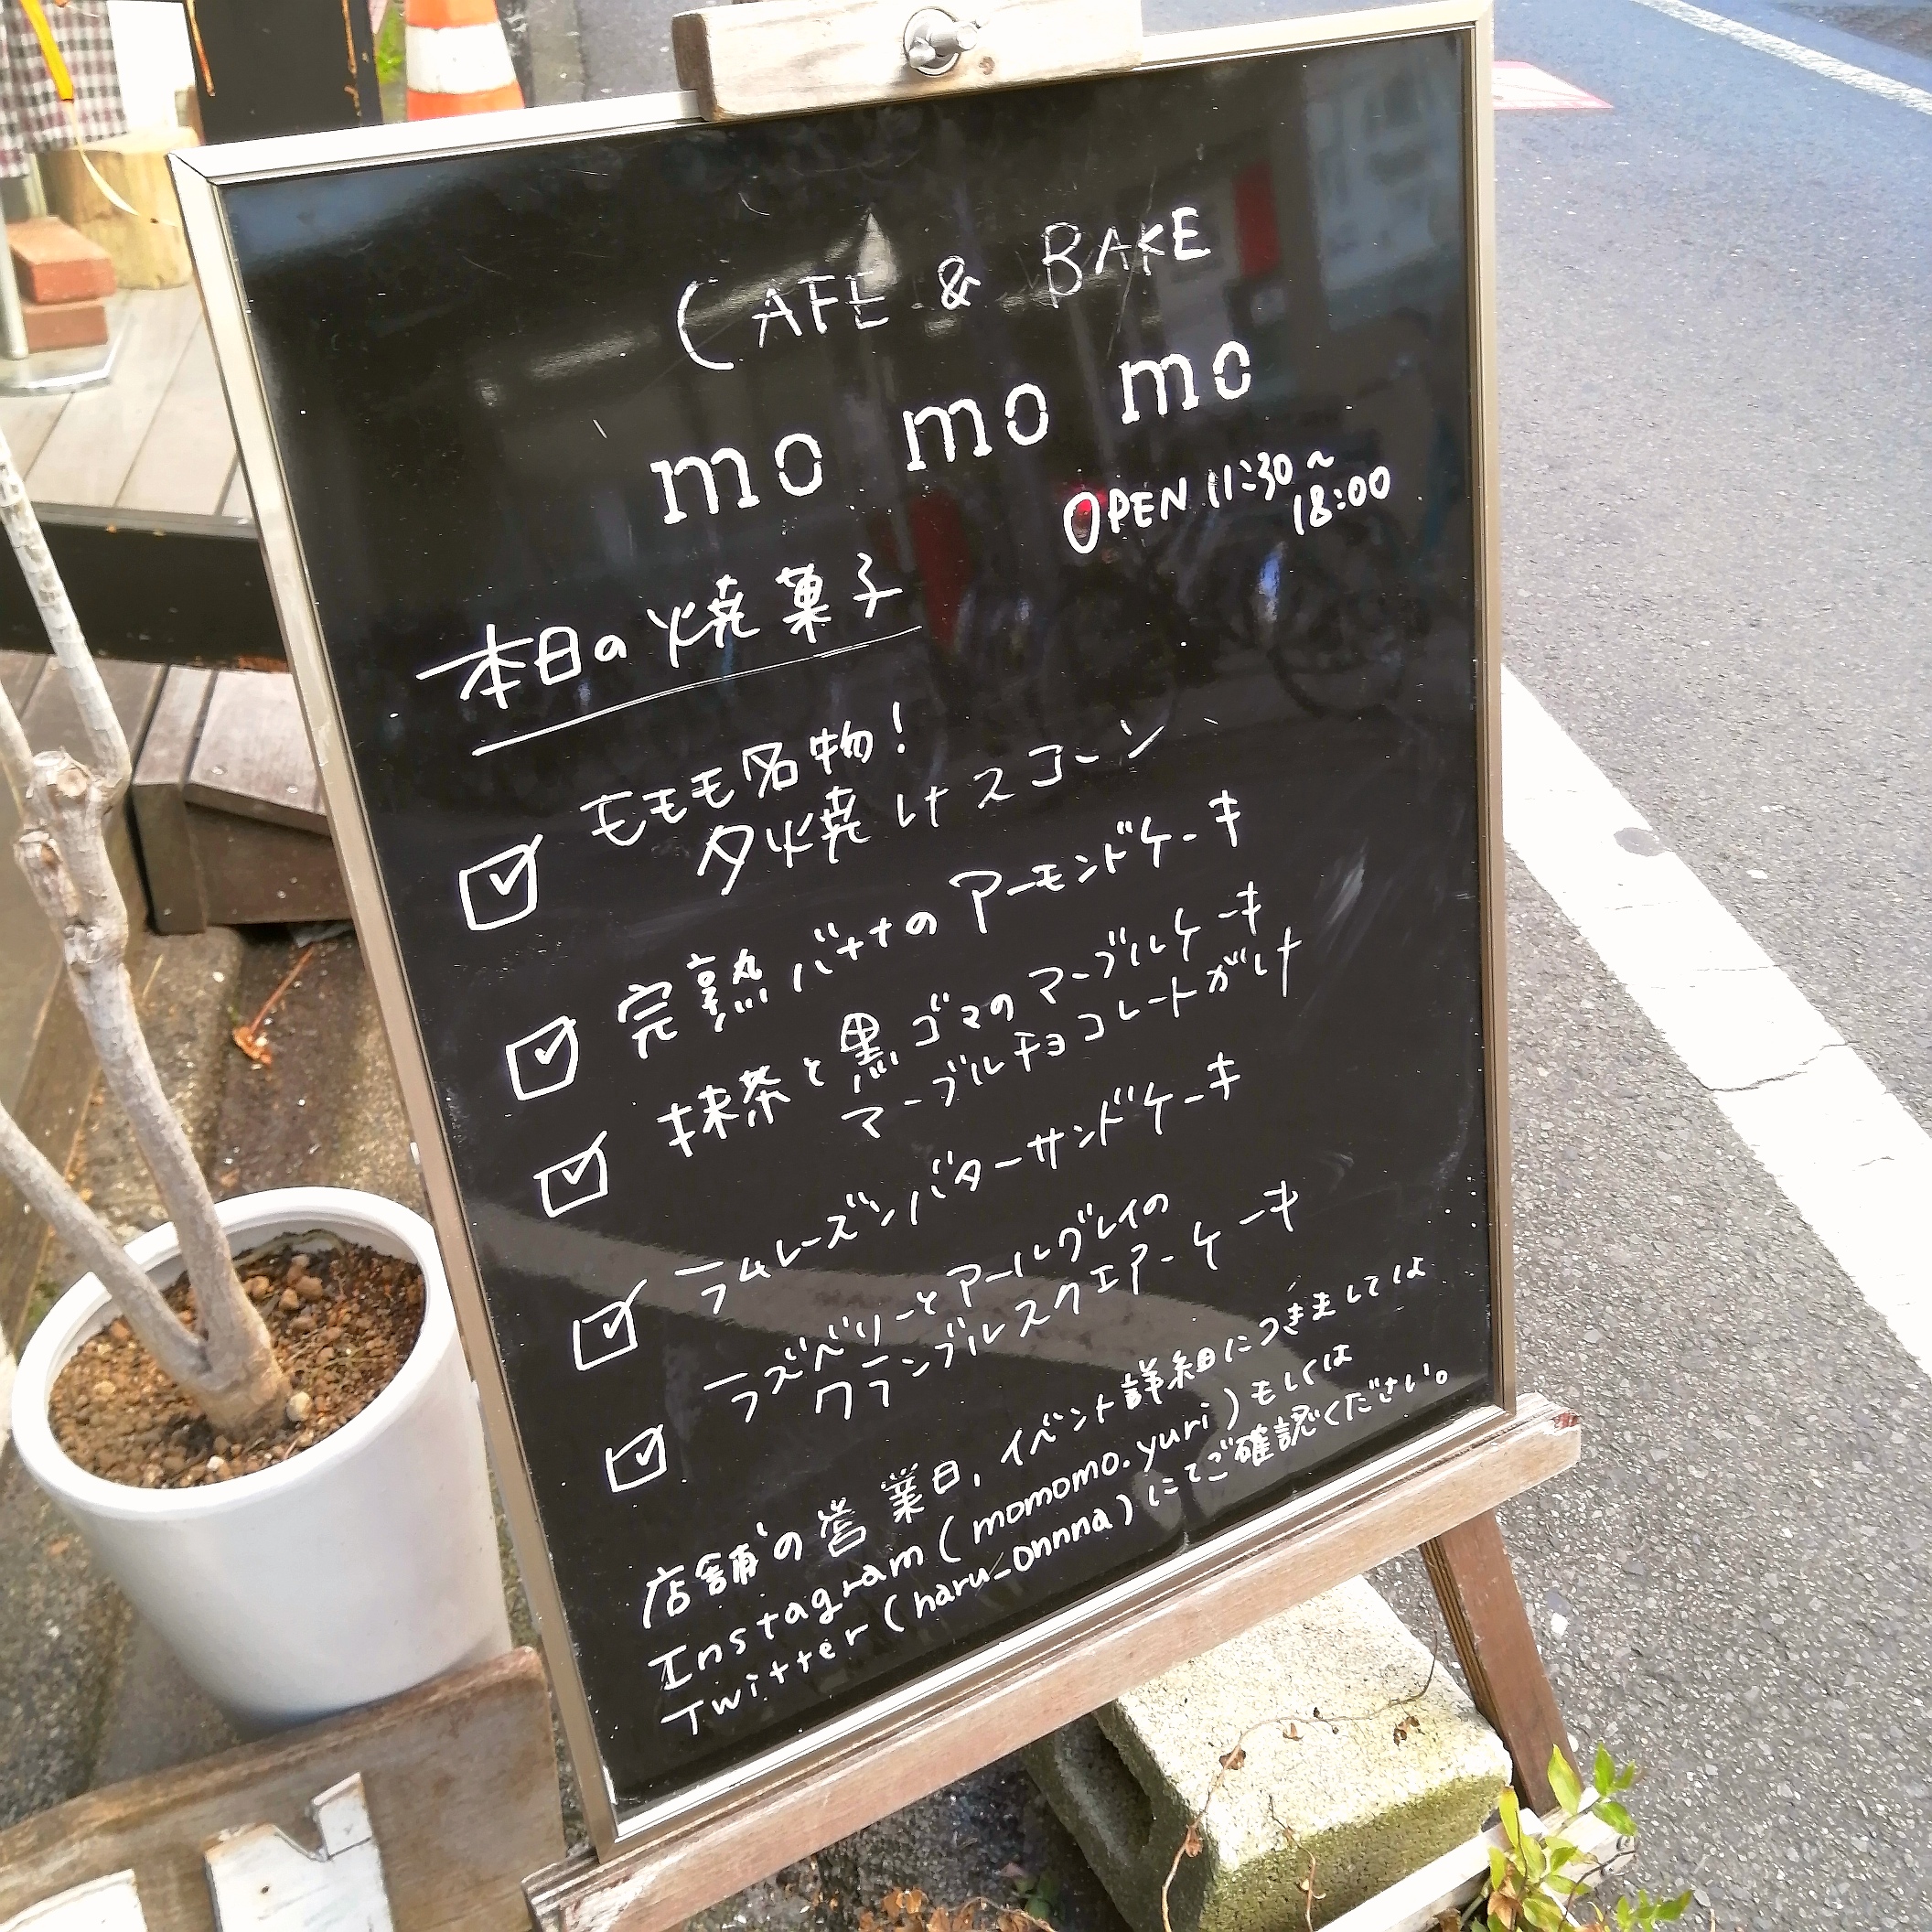 CAFE & BAKE
mo mo mo
OPEN 11:30~
18:00
本日の焼菓子
モモモ名物！
夕焼けスコーン
完熟バナナのアーモンドケーキ
抹茶と黒ゴマのマーブルケーキ
マーブルチョコレートがけ
ラムレーズンバターサンドケーキ
ラズベリーとアールグレイの
クランブルスクエアーケーキ
店舗の営業日、イベント詳細につきましては
Instagram(momomo.yuri)もしくは
Twitter(haru_onnna)にてご確認ください。